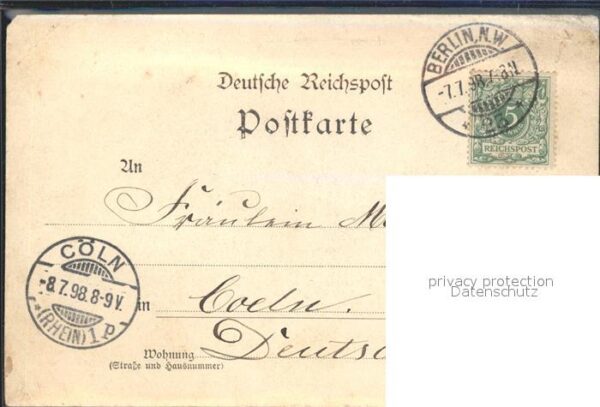 BERLIN, N.W.
-7.7.98. 7-8 N.
* 23 *
5
REICHSPOST
Deutsche Reichspost
Postkarte
An
Fräulein M
CÖLN
-8.7.98. 8-9 V.
* (RHEIN) 1 p
in Coeln.
Deuts
Wohnung
(Straße und Hausnummer)
privacy protection
Datenschutz